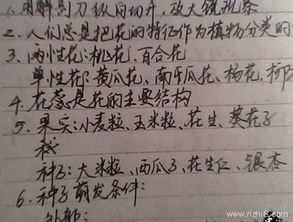 用解剖刀纵向切开，放大镜观察
2、人们总是把花的特征作为植物分类的
3、两性花：桃花、百合花
单性花：黄瓜花、南瓜花、杨花、柳
4、花蕊是花的主要结构
5、果实：小麦粒、玉米粒、花生、葵花子
种子：大米粒、西瓜子、花生仁、银杏
6、种子萌发条件：
外部：
www.rizhi8.com